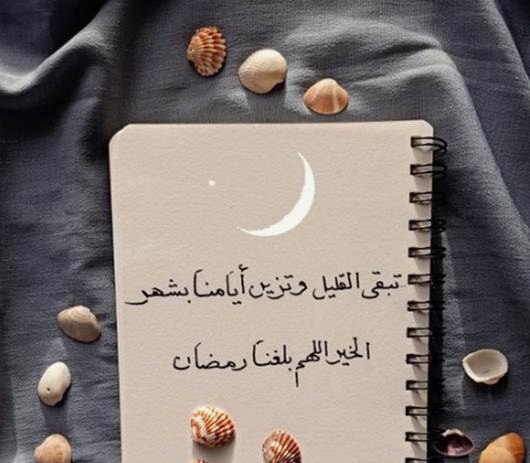 تبقى القليل وتزين أيامنا بشهر
الخير اللهم بلغنا رمضان